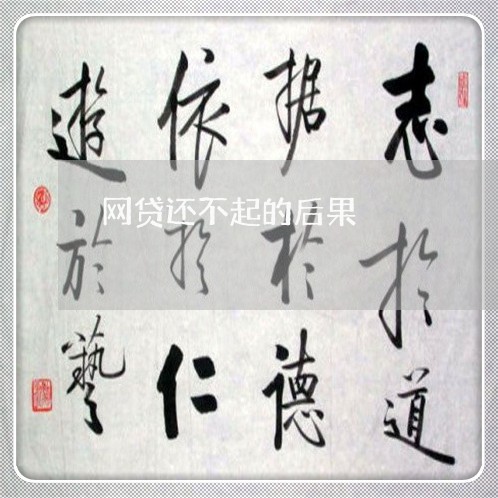 志於道
据於德
依於仁
遊於藝
网贷还不起的后果